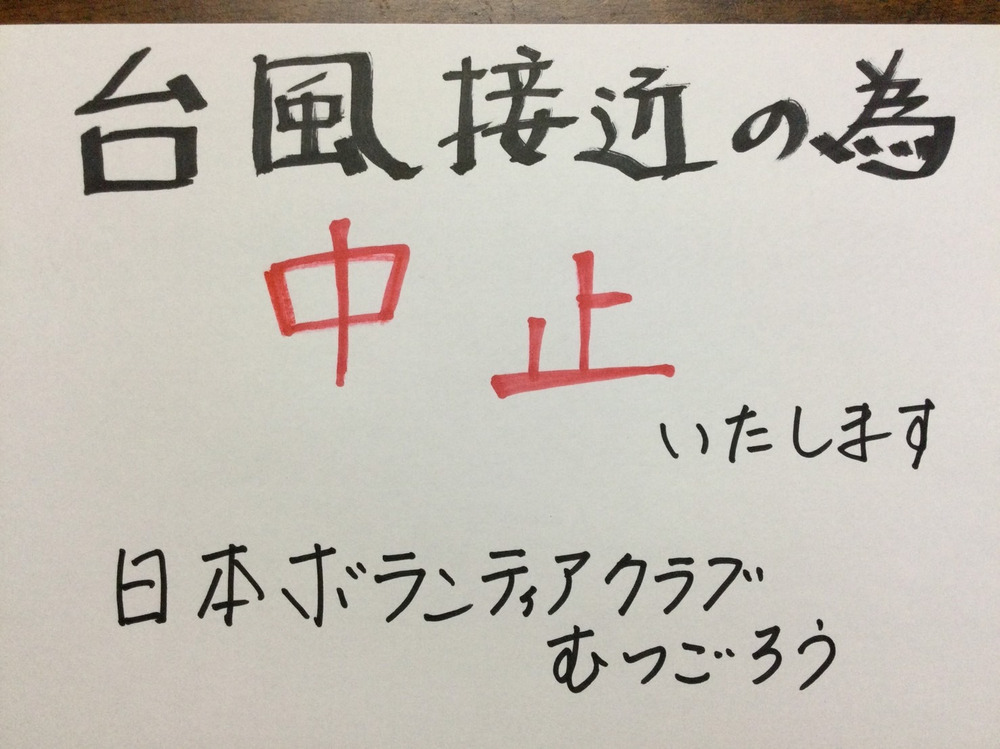 台風接近の為
中止
いたします
日本ボランティアクラブ
むつごろう